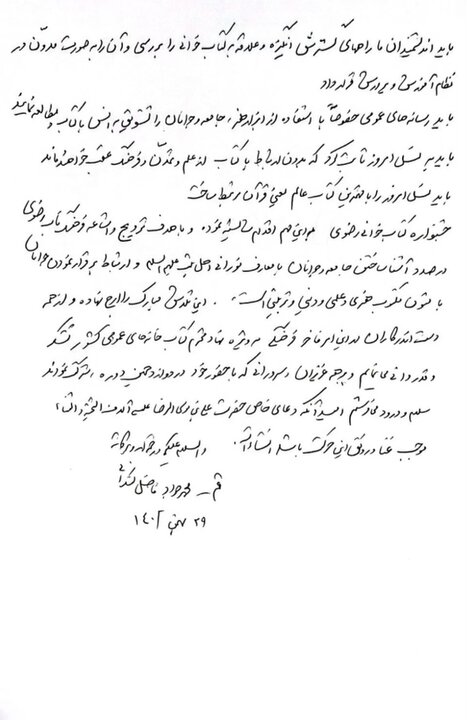 باید اندیشمندان ما راههای گسترش انگیزه و علاقه به کتاب خوانی را بررسی و آن را به صورت مدوّن در
نظام آموزش و پرورش قرار داد
باید رسانه‌های عمومی خصوصاً با استفاده از ابزار هنر، جامعه و جوانان را تشویق به انس با کتاب و مطالعه نمایند
باید به نسل امروز تأکید کرد که بدون ارتباط با کتاب از علم و تمدّن و فرهنگ عقب خواهند ماند
باید نسل امروز را با بهترین کتاب عالم یعنی قرآن مرتبط ساخت
جشنواره کتاب خوانی رضوی به این مهم اقدام شایسته نموده و با هدف ترویج و اشاعه فرهنگ ناب رضوی
درصدد آشنا ساختن جامعه و جوانان با معارف نورانی اهل بیت علیهم السلام و ارتباط برقرار نمودن جوانان
با متون مکتوب هنری و علمی و دینی و تربیتی است. این تلاش مبارک را ارج نهاده و از همه
دست اندرکاران به این امر فاخر فرهنگی به ویژه نهاد محترم کتابخانه‌های عمومی کشور تشکر
و قدردانی می نمایم و به همه عزیزان و سرورانی که با حضور خود در دوازدهمین دوره شرکت نموده‌اند
سلام و درود می فرستم امید آنکه دعای خاص حضرت علی بن موسی الرضا علیه آلاف التحیة و الثناء
موجب غنا و رونق این حرکت باشد انشاءالله.
والسلام علیکم و رحمة الله و برکاته
قم - محمد جواد فاضل لنکرانی
۲۹ بهمن ۱۴۰۲